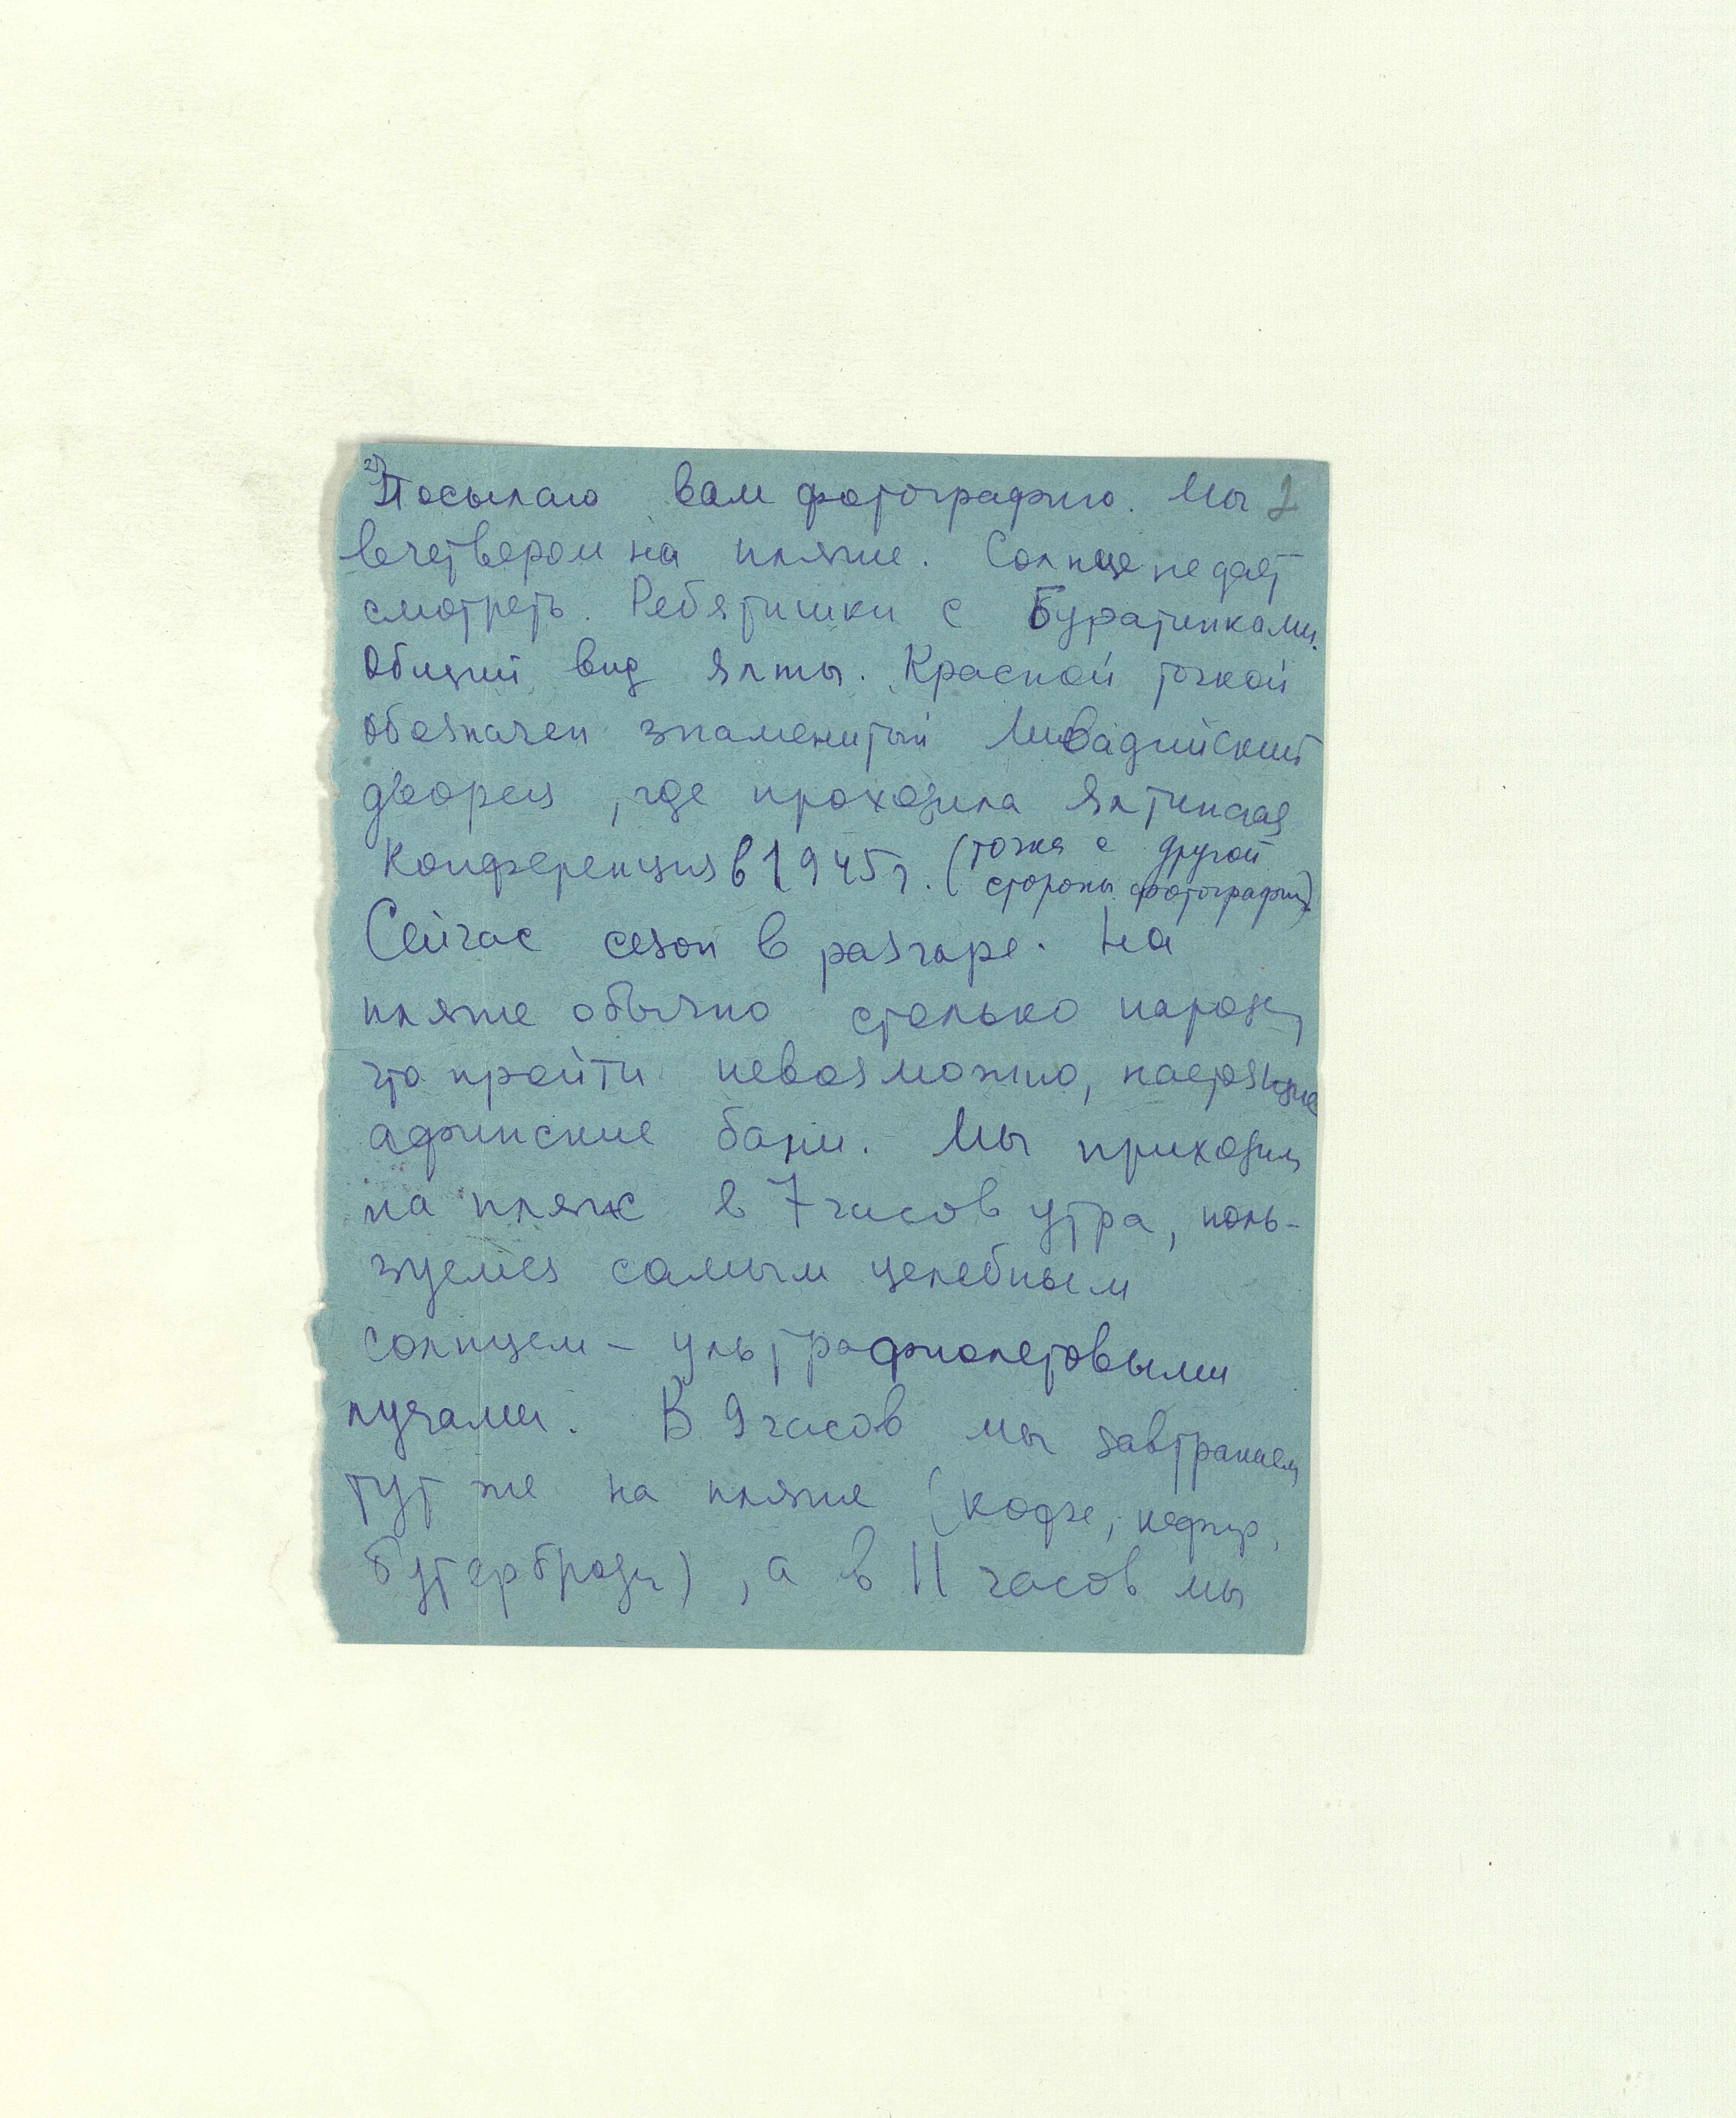 2) Посылаю вам фотографию. Мы 2
вчетвером на пляже. Солнце не даёт
смотреть. Ребятишки с Буратинками.
Общий вид Ялты. Красной точкой
обозначен знаменитый Ливадийский
дворец, где проходила Ялтинская
Конференция в 1945 г. (точка с другой
стороны фотографии)
Сейчас сезон в разгаре. На
пляже обычно столько народу,
что пройти невозможно, настоящие
афинские бани. Мы приходим
на пляж в 7 часов утра, поль-
зуемся самым целебным
солнцем – ультрафиолетовыми
лучами. В 9 часов мы завтракаем
тут же на пляже (кофе, кефир,
бутерброды), а в 11 часов мы